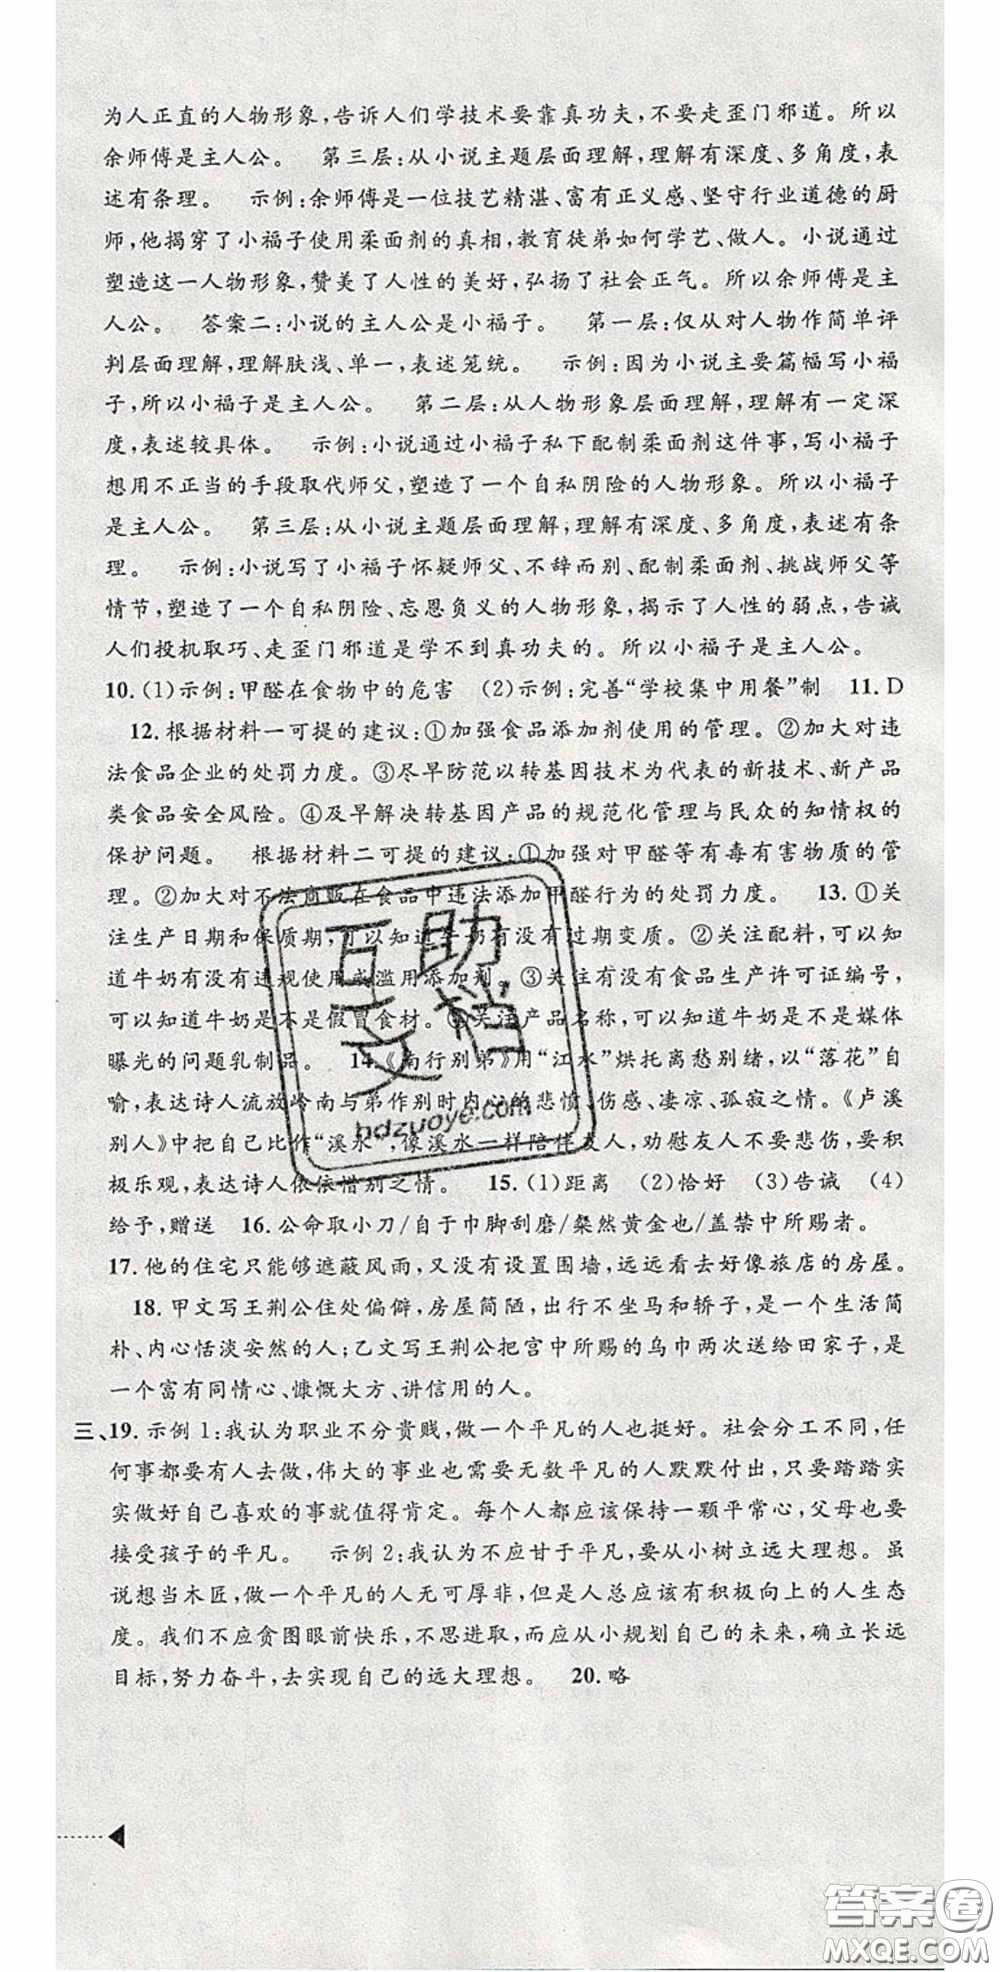 为人正直的人物形象,告诉人们学技术要靠真功夫,不要走歪门邪道。所以
余师傅是主人公。 第三层:从小说主题层面理解,理解有深度、多角度,表
述有条理。 示例:余师傅是一位技艺精湛、富有正义感、坚守行业道德的厨
师,他揭穿了小福子使用柔面剂的真相,教育徒弟如何学艺、做人。小说通过
塑造这一人物形象,赞美了人性的美好,弘扬了社会正气。所以余师傅是主
人公。 答案二:小说的主人公是小福子。 第一层:仅从对人物作简单评
判层面理解,理解肤浅、单一,表述笼统。 示例:因为小说主要篇幅写小福
子,所以小福子是主人公。 第二层:从人物形象层面理解,理解有一定深
度,表述较具体。 示例:小说通过小福子私下配制柔面剂这件事,写小福子
想用不正当的手段取代师父,塑造了一个自私阴险的人物形象。所以小福子
是主人公。 第三层:从小说主题层面理解,理解有深度、多角度,表述有条
理。 示例:小说写了小福子怀疑师父、不辞而别、配制柔面剂、挑战师父等
情节,塑造了一个自私阴险、忘恩负义的人物形象,揭示了人性的弱点,告诫
人们投机取巧、走歪门邪道是学不到真功夫的。所以小福子是主人公。
10.(1)示例:甲醛在食物中的危害 (2)示例:完善“学校集中用餐”制 11.D
12.根据材料一可提的建议:①加强食品添加剂使用的管理。②加大对违
法食品企业的处罚力度。③尽早防范以转基因技术为代表的新技术、新产品
类食品安全风险。④及早解决转基因产品的规范化管理与民众的知情权的
保护问题。 根据材料二可提的建议:①加强对甲醛等有毒有害物质的管
理。②加大对不法商贩在食品中违法添加甲醛行为的处罚力度。 13.①关
注生产日期和保质期,可以知道牛奶有没有过期变质。②关注配料,可以知
道牛奶有没有违规使用或滥用添加剂。③关注有没有食品生产许可证编号,
可以知道牛奶是不是假冒食材。④关注产品名称,可以知道牛奶是不是媒体
曝光的问题乳制品。 14.《南行别弟》用“江水”烘托离愁别绪,以“落花”自
喻,表达诗人流放岭南与弟作别时内心的悲愤、伤感、凄凉、孤寂之情。《卢溪
别人》中把自己比作“溪水”,像溪水一样陪伴友人,劝慰友人不要悲伤,要积
极乐观,表达诗人依依惜别之情。 15.(1)距离 (2)恰好 (3)告诫 (4)
给予,赠送 16.公命取小刀/自于巾脚刮磨/粲然黄金也/盖禁中所赐者。
17.他的住宅只能够遮蔽风雨,又没有设置围墙,远远看去好像旅店的房屋。
18.甲文写王荆公住处偏僻,房屋简陋,出行不坐马和轿子,是一个生活简
朴、内心恬淡安然的人;乙文写王荆公把宫中所赐的乌巾两次送给田家子,是
一个富有同情心、慷慨大方、讲信用的人。
三、19.示例1:我认为职业不分贵贱,做一个平凡的人也挺好。社会分工不同,任
何事都要有人去做,伟大的事业也需要无数平凡的人默默付出,只要踏踏实
实做好自己喜欢的事就值得肯定。每个人都应该保持一颗平常心,父母也要
接受孩子的平凡。 示例2:我认为不应甘于平凡,要从小树立远大理想。虽
说想当木匠,做一个平凡的人无可厚非,但是人总应该有积极向上的人生态
度。我们不应贪图眼前快乐,不思进取,而应从小规划自己的未来,确立长远
目标,努力奋斗,去实现自己的远大理想。 20.略
互助
文档
hdzuoye.com
答案圈
MXQE.COM